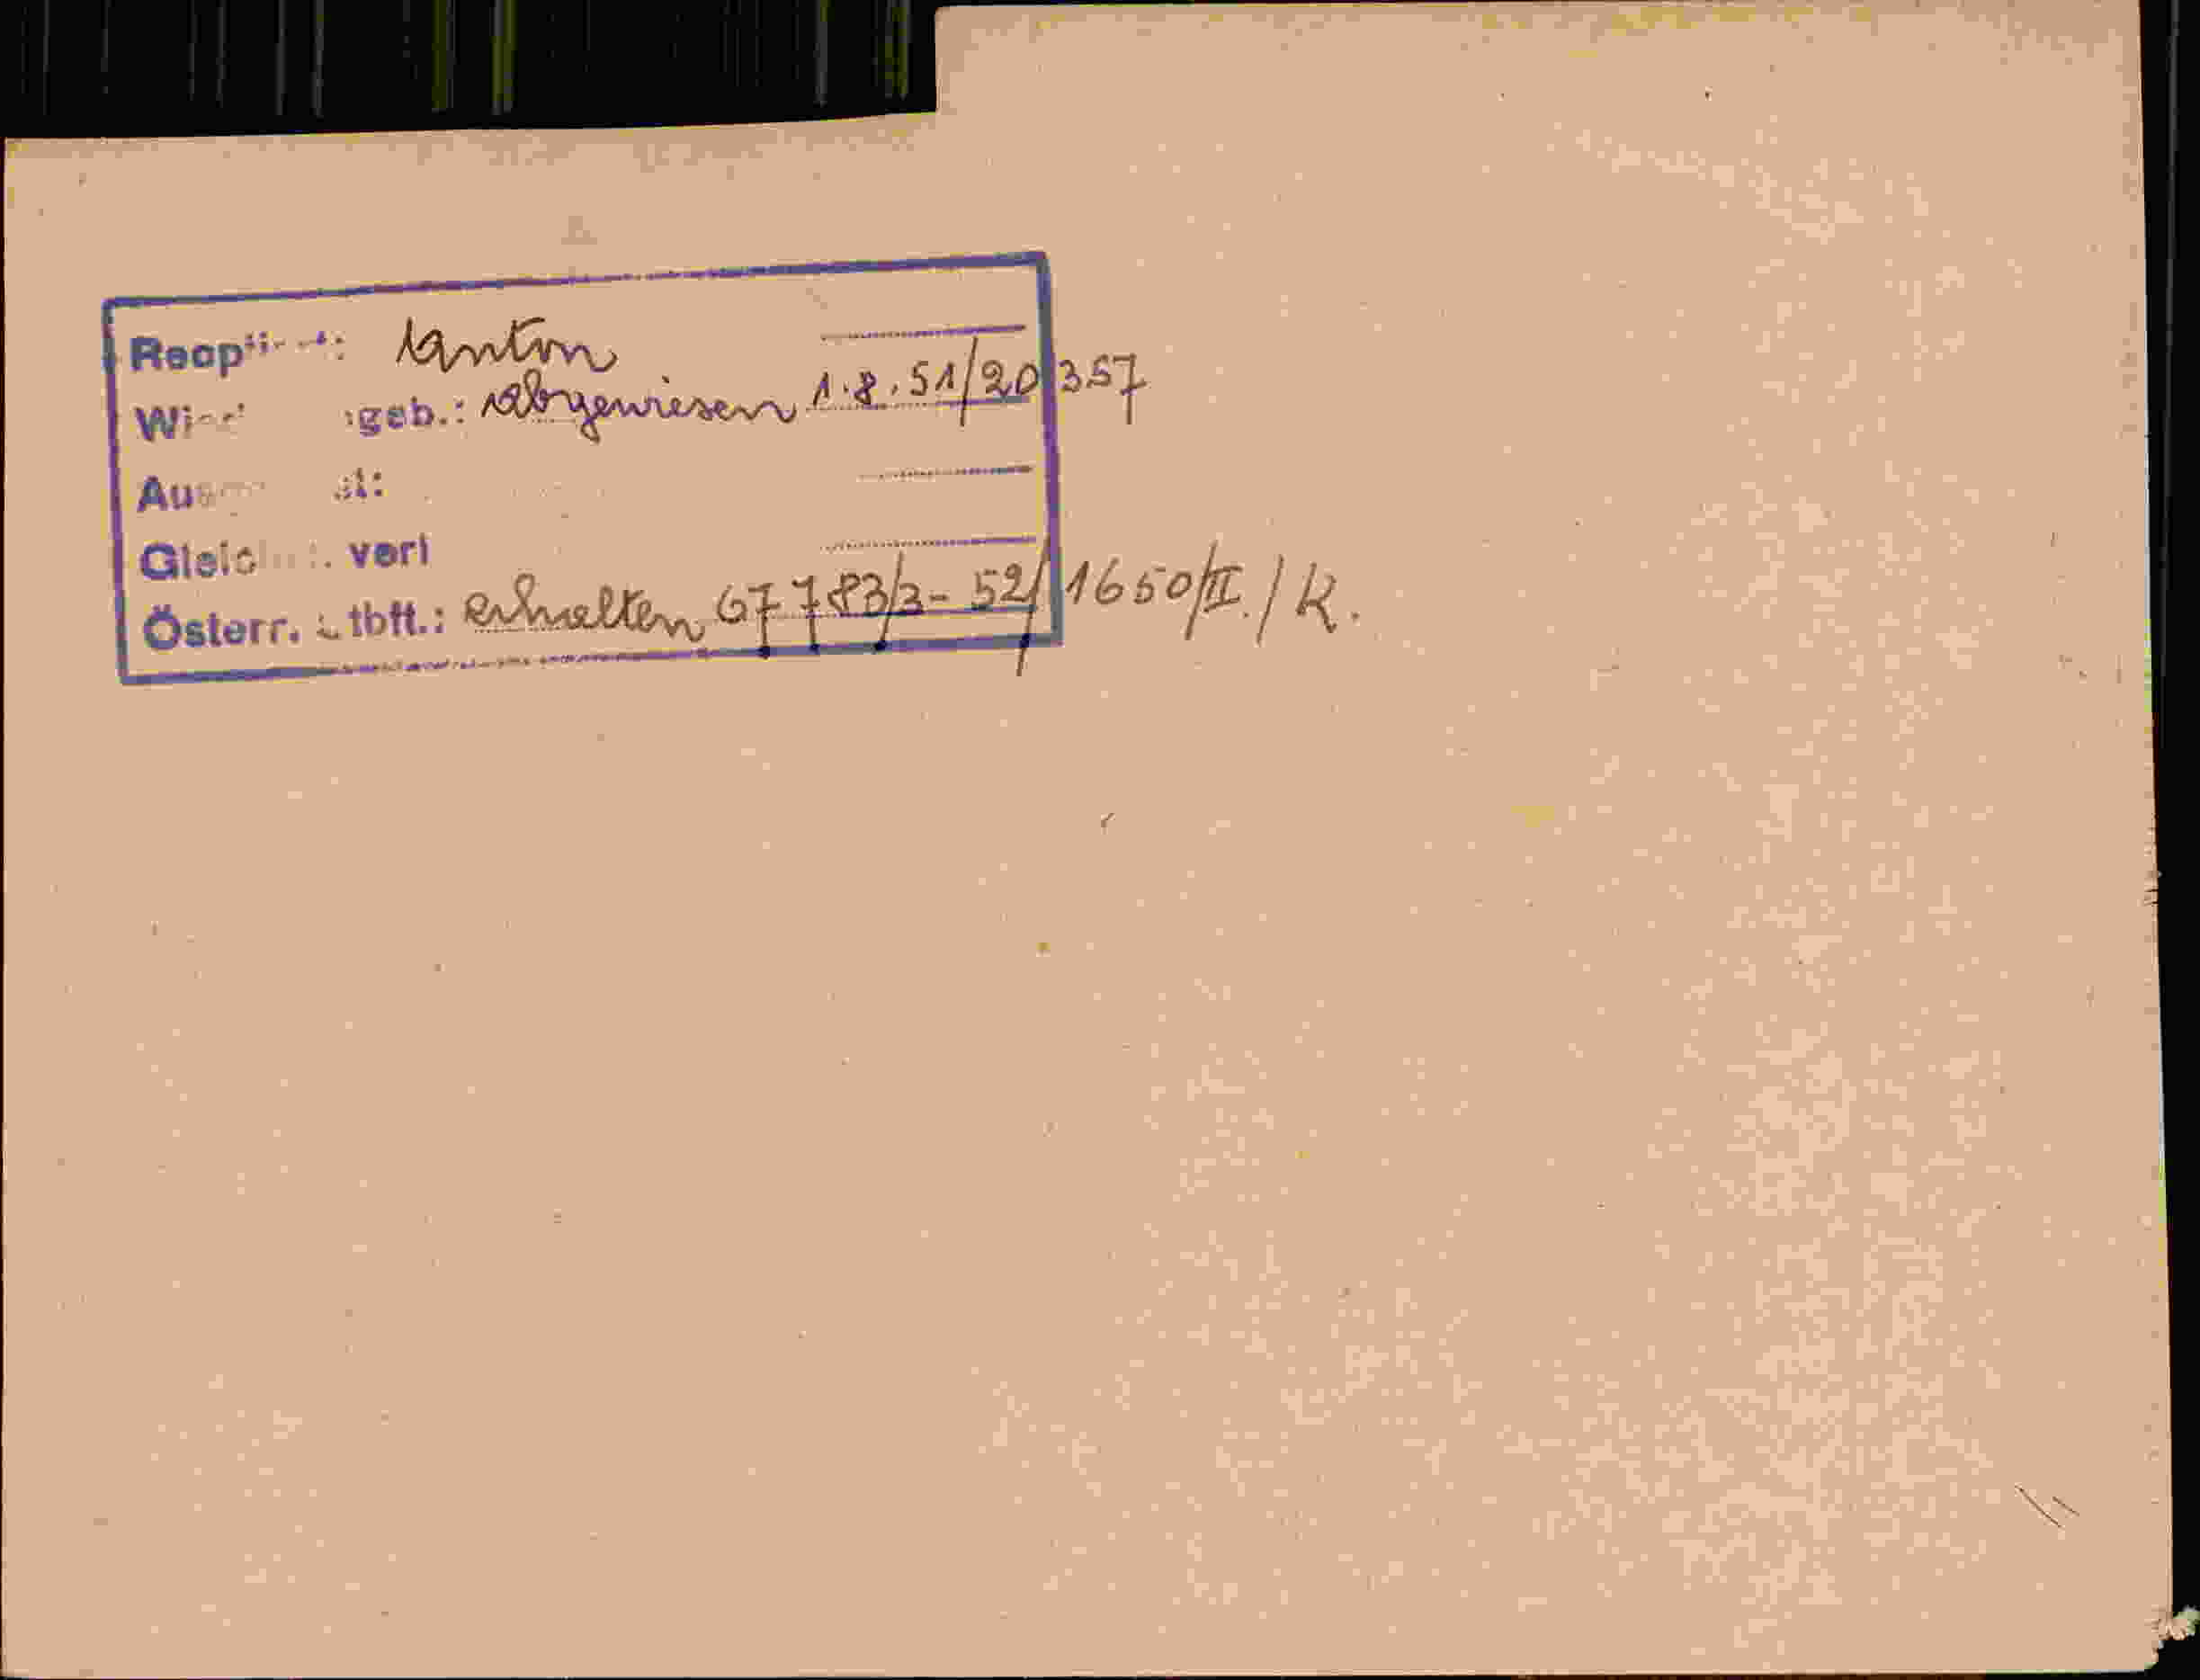 Reop : Anton
geb.: abgewiesen 1.8.51/20357
Gleich . verl
Österr. tbft.: erhalten 67783/2-52/1650/II./K.